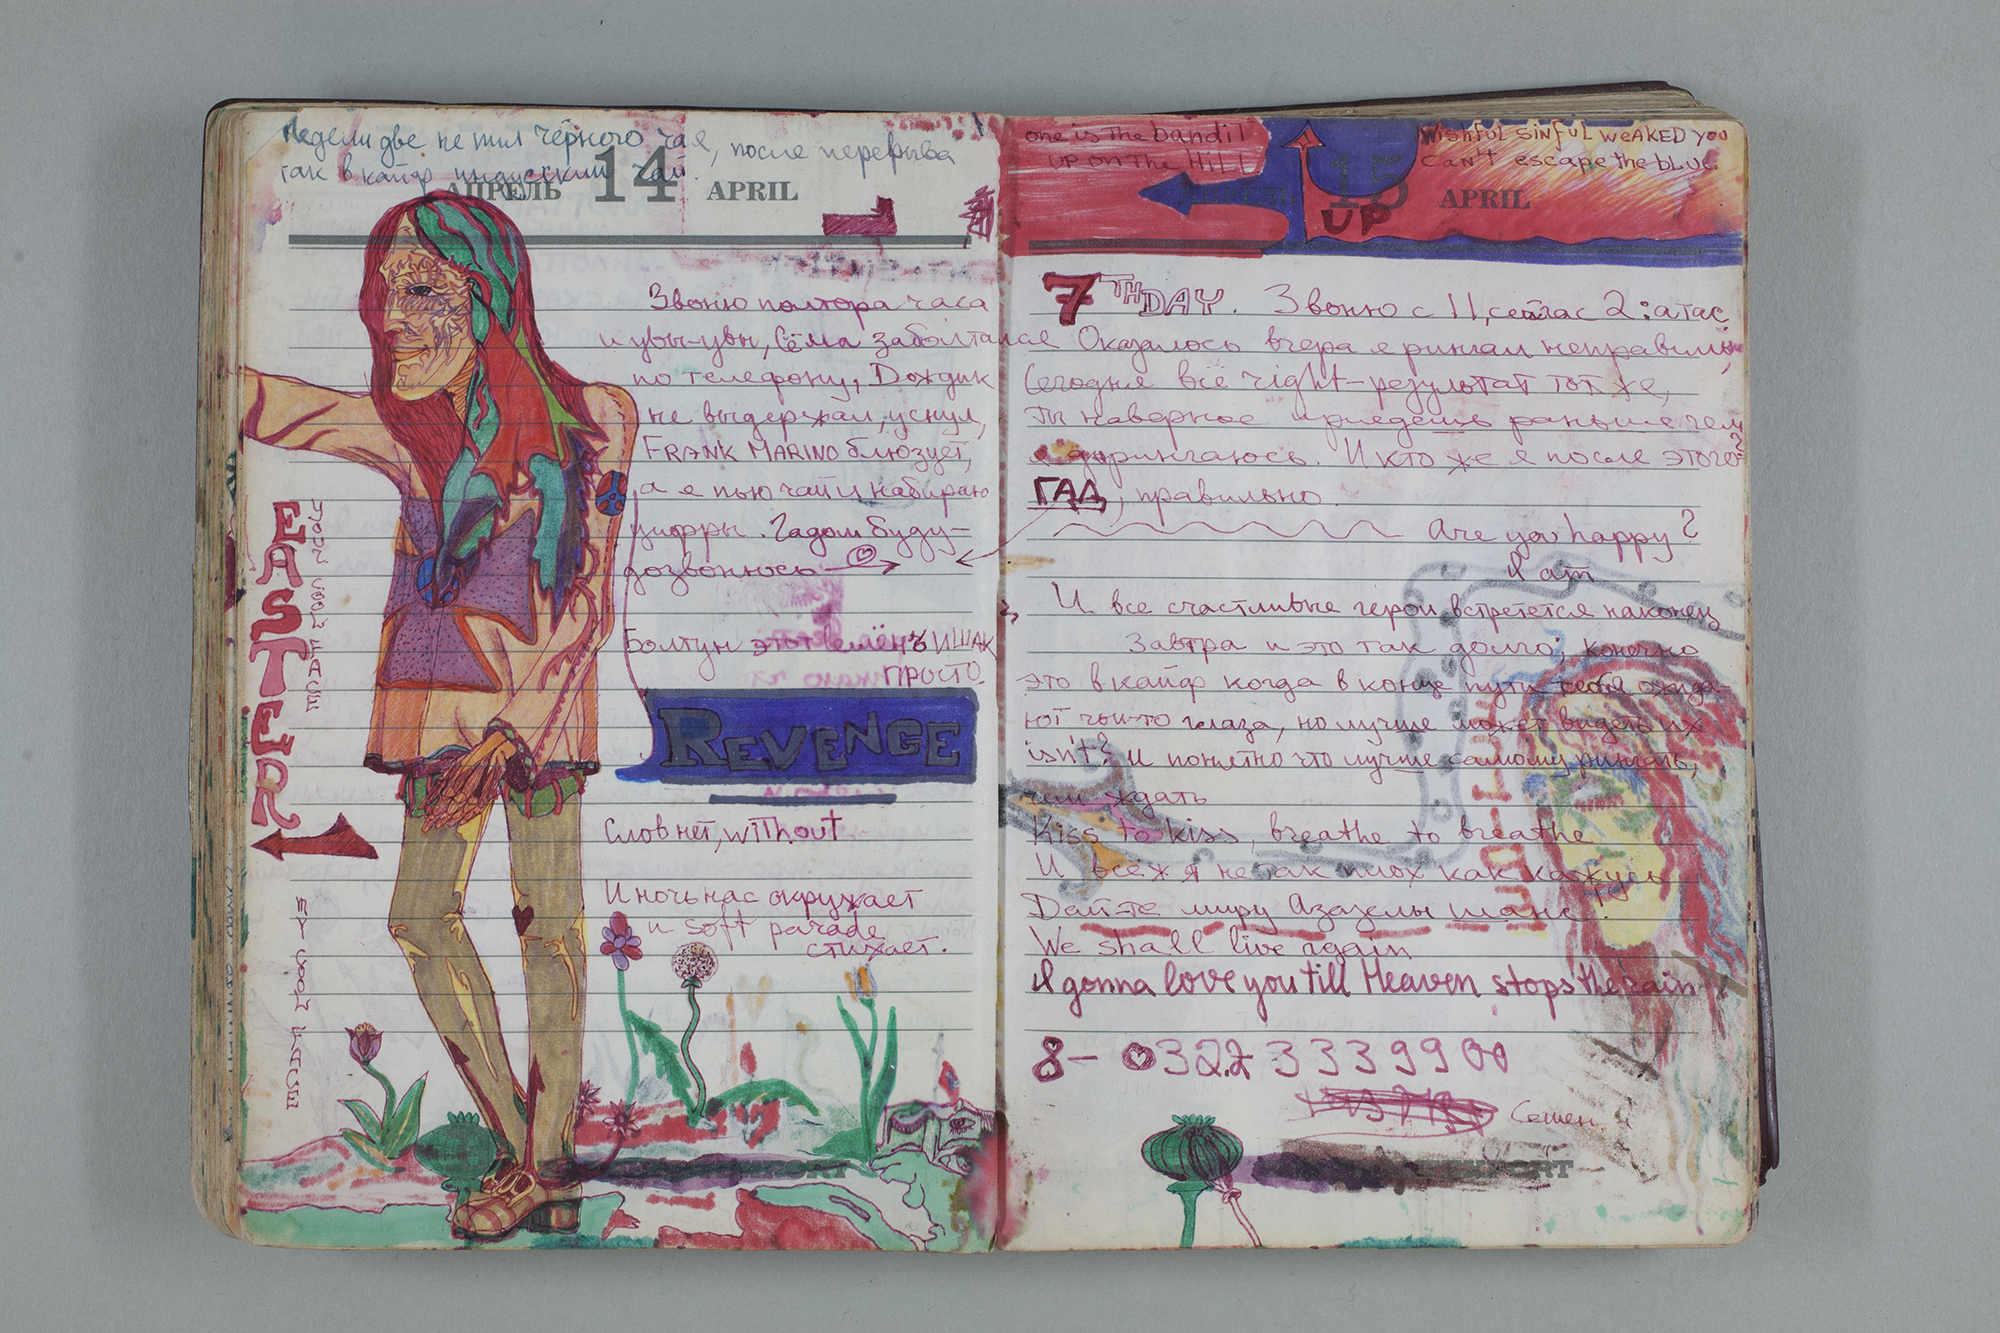 Недели две не пил чёрного чая, после перерыва
так в кайф индусский чай.
АПРЕЛЬ 14 APRIL
Звоню полтора часа
и увы-увы, Сёма заболтался
по телефону, Дождик
не выдержал, уснул,
FRANK MARINO блюзует,
а я пью чай и набираю
цифры. Гадом буду-
дозвонюсь
Болтун ИШАК
ПРОСТО.
REVENGE
Слов нет, without
И ночь нас окружает
и soft parade
стихает.
EASTER
YOUR FACE
MY
one is the bandit
up on the HiLL
UP
15 APRIL
Wishful sinful weAKED you
can't escape the blue.
7TH DAY. Звоню с 11, сейчас 2; атас
Оказалось вчера я рингал неправильно
Сегодня всё right-результат тот же,
Ты наверное приедешь раньше чем
я дорингаюсь. И кто же я после этого?
ГАД, правильно
Are you happy?
I am
И все счастливые герои встретятся наконец
Завтра и это так долго; конечно
это в кайф когда в конце пути тебя ожида-
ют чьи-то глаза, но лучше может видеть их
isn't? И понятно что лучше самому рингать,
чем ждать
Kiss to kiss, breathe to breathe
И всё ж я не так плох как кажусь
Дайте миру Азазелы шанс!
We shall live again
I gonna love you till Heaven stops the rain
8- 0322 333 99 00
Семен.